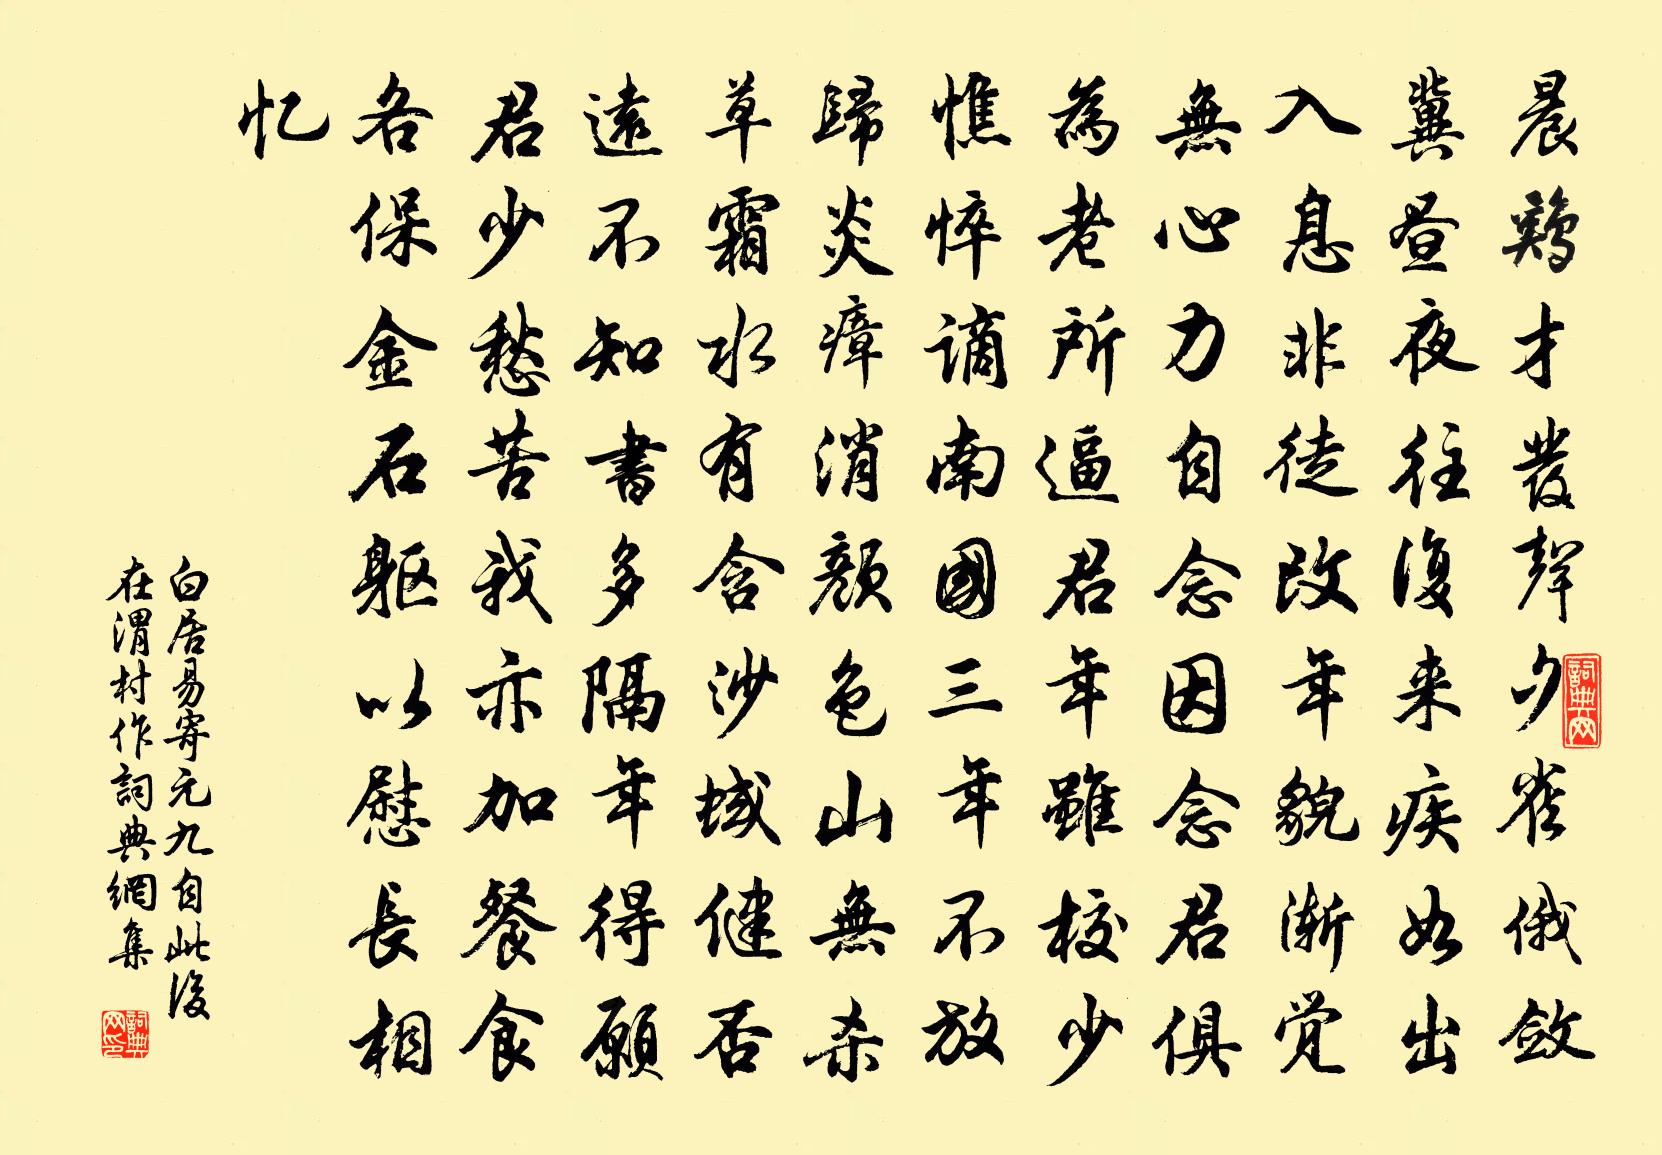 晨鷄才發聲夕雀俄斂
冀昼夜往復来疾如出
入息非徒改年貌漸觉
無心力自念因念君俱
為老所逼君年雖校少
憔悴謫南國三年不放
歸炎瘴消顏色山無杀
草霜水有含沙域健否
遠不知書多隔年得願
君少愁苦我亦加餐食
各保金石躯以慰長相
忆
白居易寄元九自此後
在渭村作詞典網集
詞典网
詞典网印